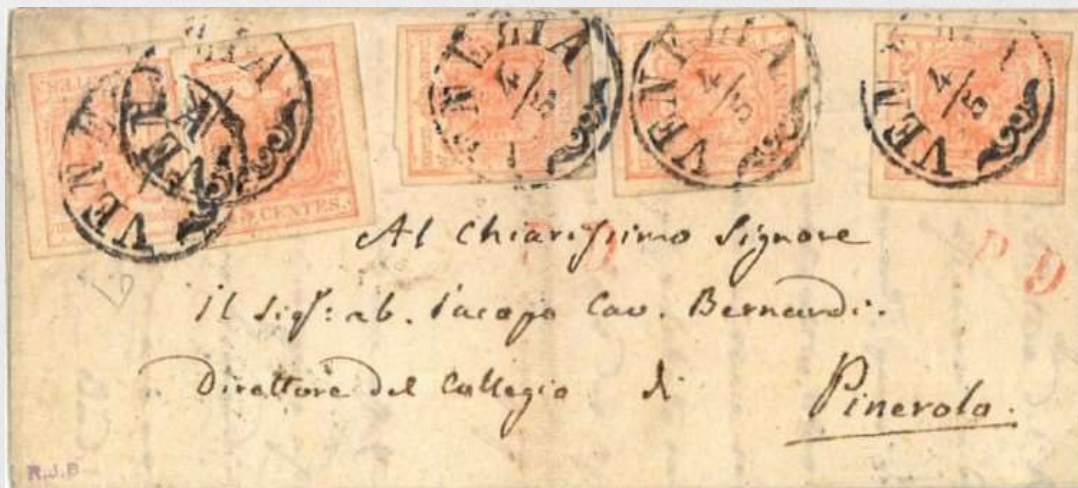 VENEZIA VENEZIA VENEZIA VENEZIA VENEZIA
4/5 4/5 4/5
CENTES.
Al Chiarissimo Signore
P D
P D
Il Sigr: ab. Iacopo Cav. Bernardi.
Direttore del Collegio di Pinerolo.
R.J.B